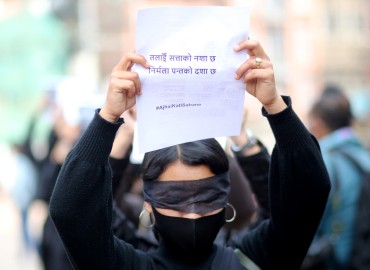 तलाई सत्ताको नशा छ
निर्मला पन्तको दशा छ
#AjhaiKatiSahane